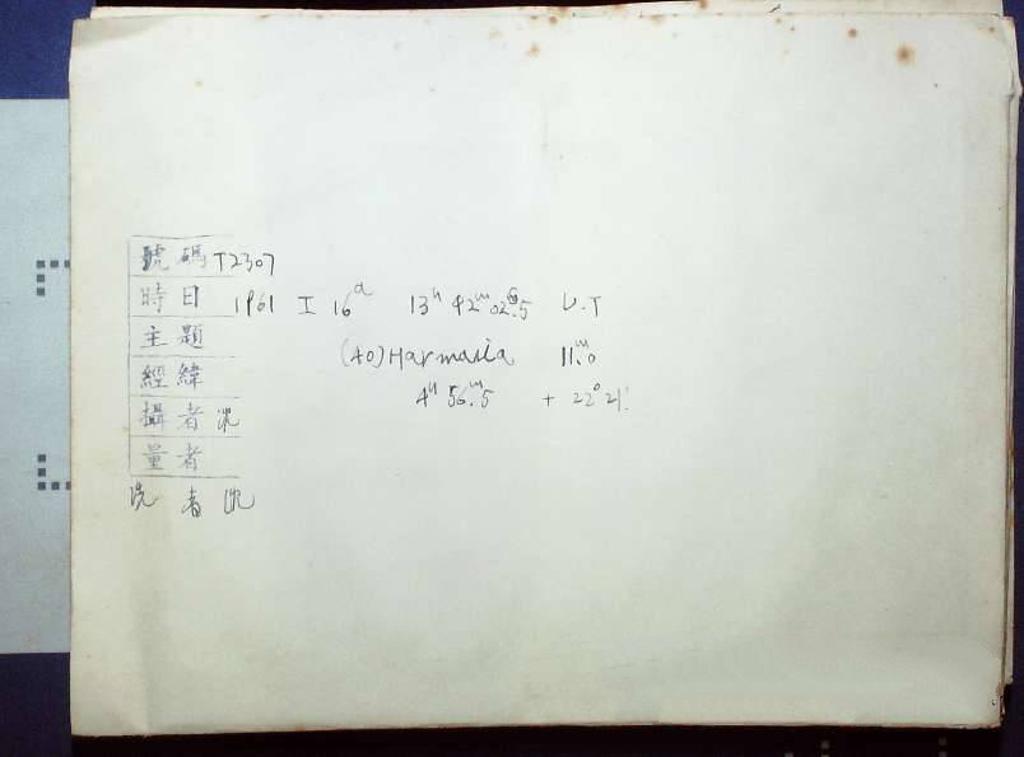 號碼 T2307
時日 1961 I 16ᵈ 13ʰ 42ᵐ 02ˢ.5 U.T
主題 (40) Harmonia 11ᵐ.0
經緯 4ʰ 56ᵐ.5 + 22° 21!
攝者 沈
量者
洗者 沈